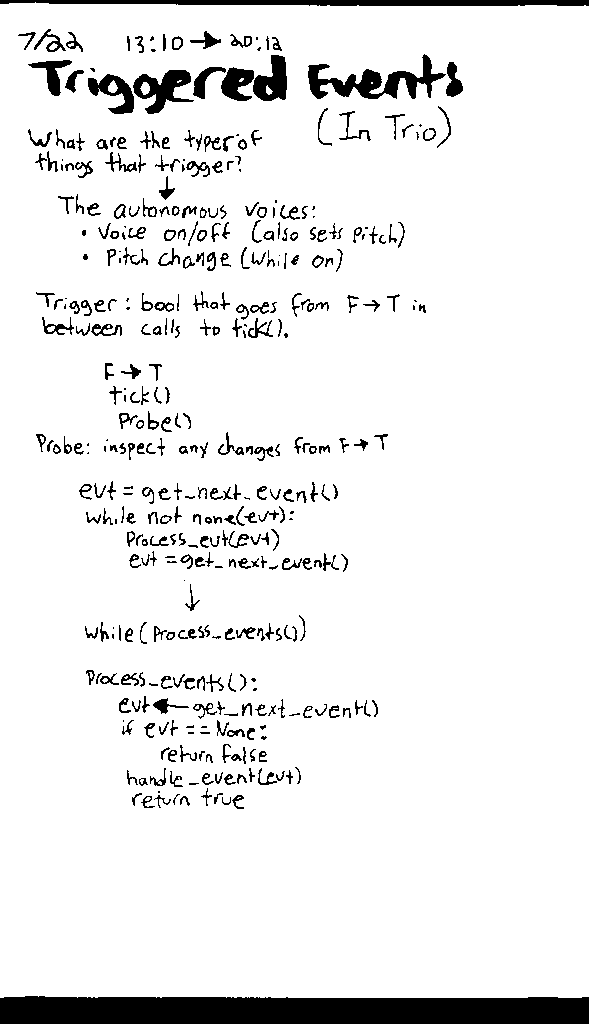 7/22 13:10 → 20:12
Triggered Events
(In Trio)
What are the types of
things that trigger?
↓
The autonomous voices:
• Voice on/off (also sets pitch)
• Pitch change (while on)
Trigger: bool that goes from F → T in
between calls to tick().
F → T
tick()
Probe()
Probe: inspect any changes from F → T
evt = get_next_event()
while not none(evt):
Process_evt(evt)
evt = get_next_event()
↓
while(Process_events())
Process_events():
evt ← get_next_event()
if evt == None:
return false
handle_event(evt)
return true